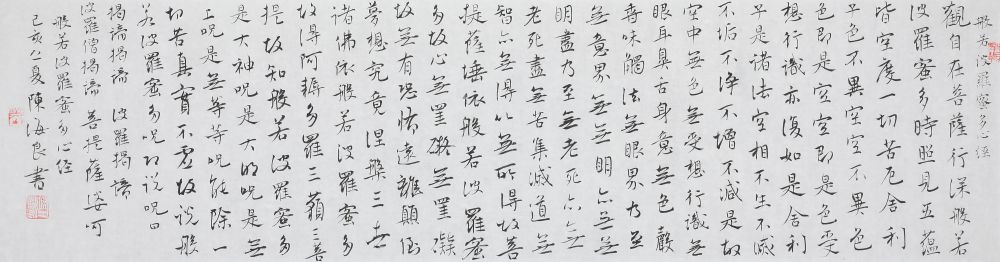 般若波羅蜜多心经
觀自在菩薩行深般若
波羅蜜多時照見五蘊
皆空度一切苦厄舍利
子色不異空空不異色
色即是空空即是色受
想行識亦復如是舍利
子是诸法空相不生不滅
不垢不净不增不减是故
空中無色無受想行識無
眼耳鼻舌身意無色聲
香味觸法無眼界乃至
無意界無無明亦無無
明盡乃至無老死亦無
老死盡無苦集滅道無
智亦無得以無所得故菩
提薩埵依般若波羅蜜
多故心無罣礙無罣礙
故無有恐怖遠離顛倒
夢想究竟涅槃三世
諸佛依般若波羅蜜多
故得阿耨多羅三藐三菩
提故知般若波羅蜜多
是大神咒是大明咒是無
上咒是無等等咒能除一
切苦真實不虛故說般
若波羅蜜多咒即說咒曰
揭諦揭諦 波羅揭諦
波羅僧揭諦 菩提薩婆訶
般若波羅蜜多心经
己亥夏陳海良書